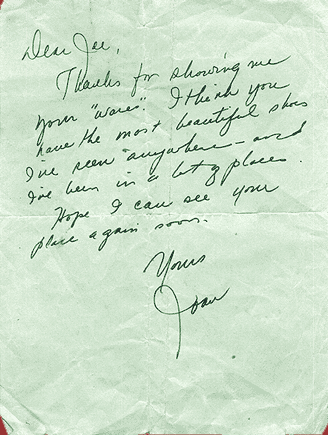 Dear Joe,
Thanks for showing me
your "wares". I think you
have the most beautiful shoes
I've seen anywhere - and
I've been in a lot of places.
Hope I can see your
place again soon.
Yours
Joan